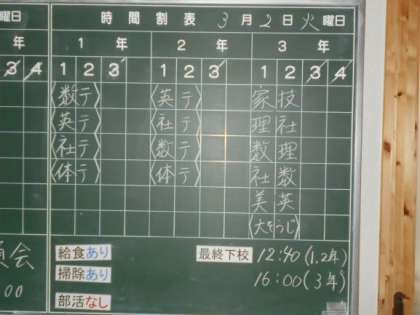 曜日
時間割表 3月2日火曜日
年 1年 2年 3年
3 4 1 2 3 1 2 3 1 2 3 4
〈数テ〉 〈英テ〉 家 技
〈英テ〉 〈社テ〉 理 社
〈社テ〉 〈数テ〉 数 理
〈体テ〉 〈体テ〉 社 数
美 英
〈大そうじ〉
会 給食あり 最終下校 12:40(1,2年)
掃除あり 16:00(3年)
00 部活なし